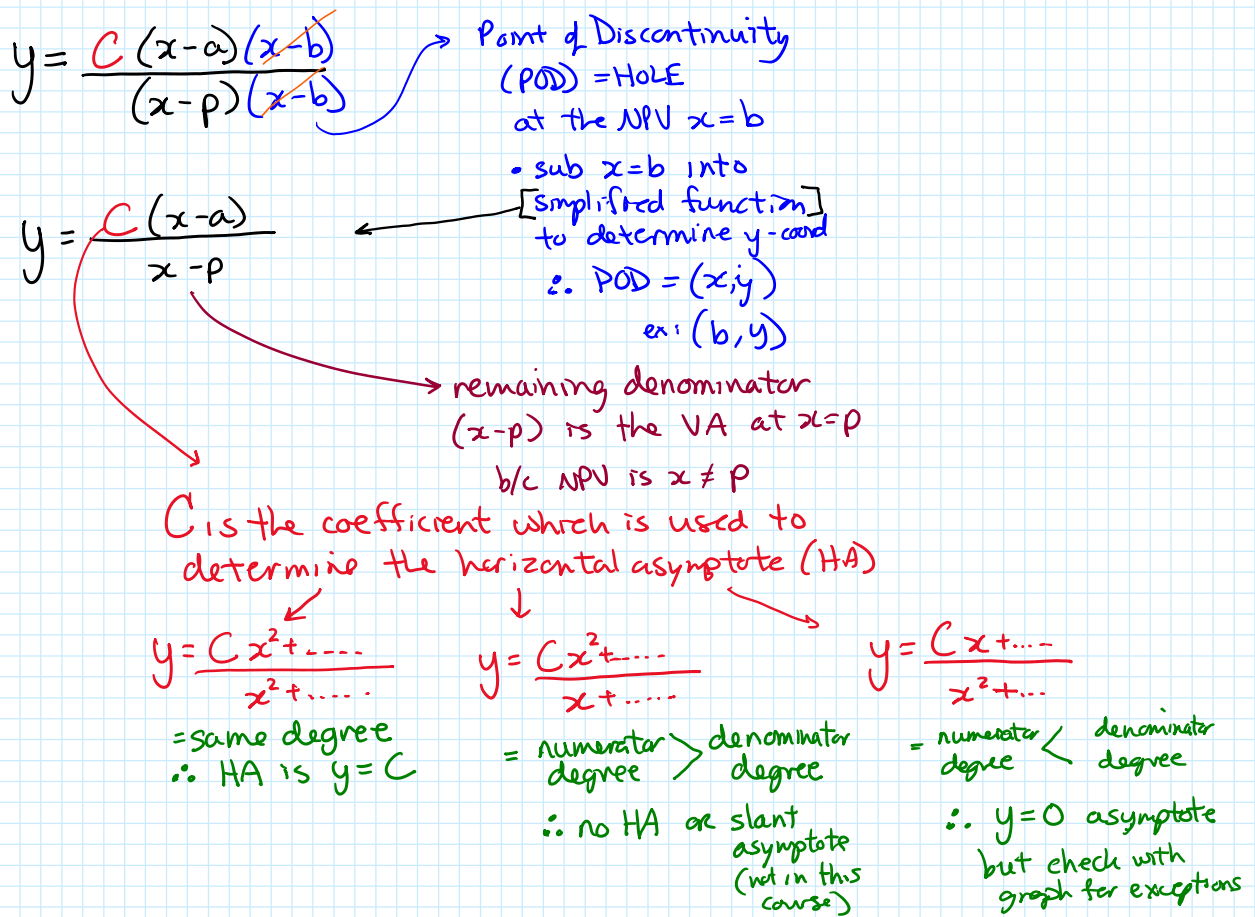 y = C (x-a)(x-b)
(x-p)(x-b)
Point of Discontinuity
(POD) = HOLE
at the NPV x = b
• sub x=b into
[simplified function]
to determine y-coord
∴ POD = (x,y)
ex: (b, y)
y = C (x-a)
x - p
remaining denominator
(x-p) is the VA at x=p
b/c NPV is x ≠ p
C is the coefficient which is used to
determine the horizontal asymptote (HA)
y = C x² + .....
x² + ......
= same degree
∴ HA is y = C
y = C x² + ......
x + ......
= numerator > denominator
degree degree
∴ no HA or slant
asymptote
(not in this
course)
y = C x + ....
x² + ...
= numerator < denominator
degree degree
∴ y = 0 asymptote
but check with
graph for exceptions